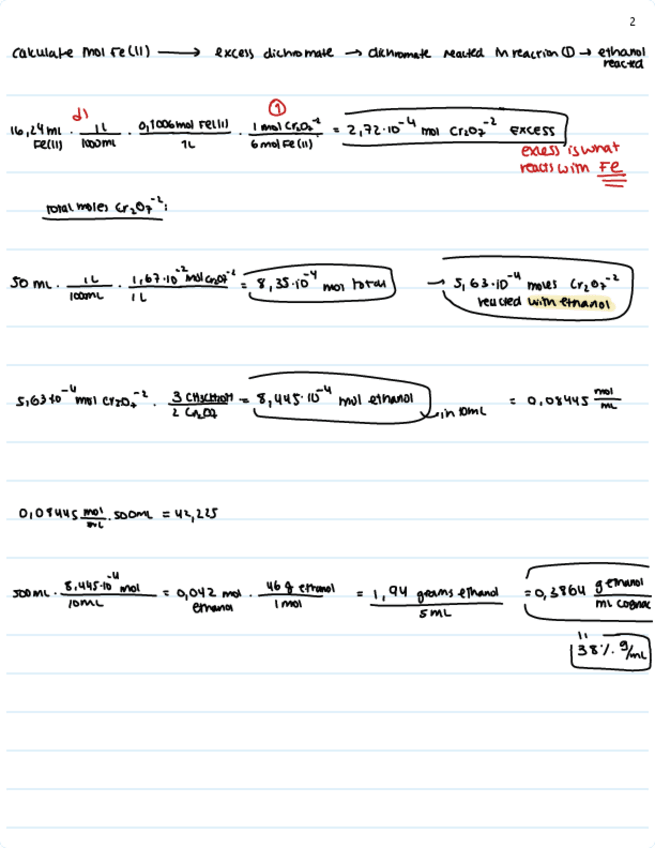 2
Calculate mol Fe(II) → excess dichromate → dichromate reacted in reaction ① → ethanol reacted
d) ①
16,24 mL Fe(II) · 1L / 1000mL · 0,1006 mol Fe(II) / 1L · 1 mol Cr₂O₇⁻² / 6 mol Fe(II) = 2,72·10⁻⁴ mol Cr₂O₇⁻² excess
excess is what
reacts with Fe
Total moles Cr₂O₇⁻²:
50 mL · 1L / 1000mL · 1,67·10⁻² mol Cr₂O₇⁻² / 1L = 8,35·10⁻⁴ mol total → 5,63·10⁻⁴ moles Cr₂O₇⁻² reacted with ethanol
5,63·10⁻⁴ mol Cr₂O₇⁻² · 3 CH₃CH₂OH / 2 Cr₂O₇ = 8,445·10⁻⁴ mol ethanol in 10mL = 0,08445 mol/mL
0,08445 mol/mL · 500mL = 42,225
500 mL · 8,445·10⁻⁴ mol / 10mL = 0,042 mol ethanol · 46 g ethanol / 1 mol = 1,94 grams ethanol / 5 mL = 0,3864 g ethanol / mL cognac
38 % g/mL